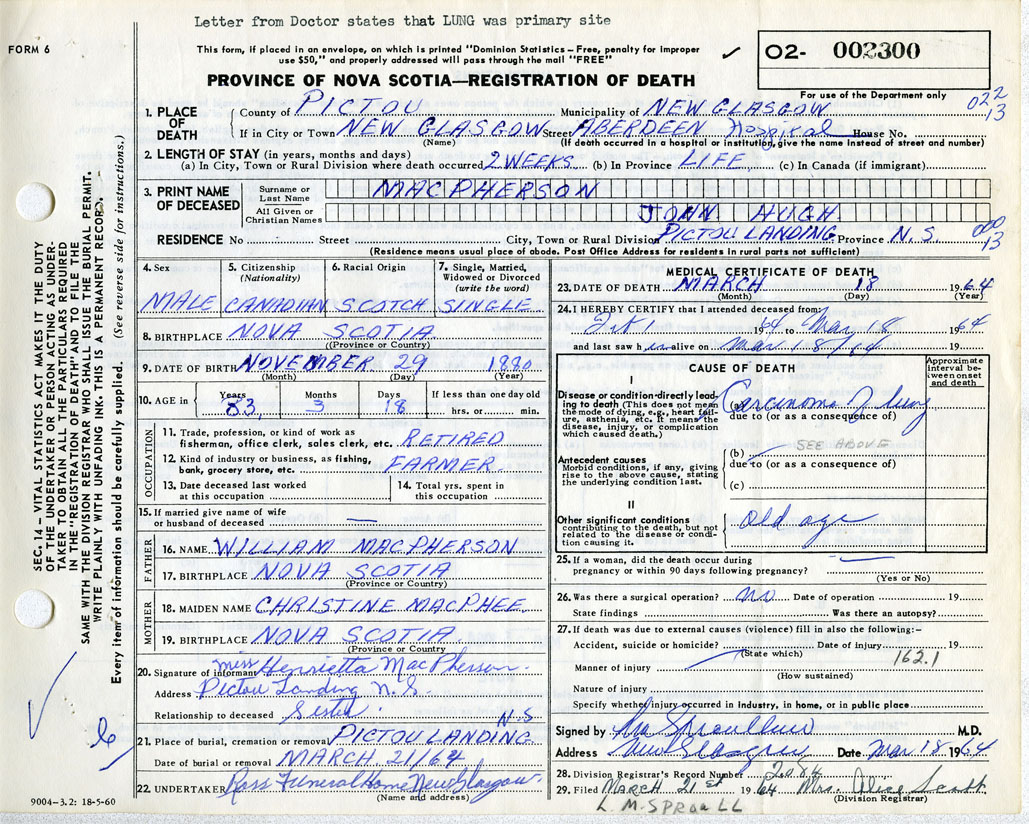 Letter from Doctor states that LUNG was primary site
FORM 6
This form, if placed in an envelope, on which is printed "Dominion Statistics – Free, penalty for improper
use $50," and properly addressed will pass through the mail "FREE"
✓
02- 002300
For use of the Department only
PROVINCE OF NOVA SCOTIA—REGISTRATION OF DEATH
022
13
1. PLACE OF DEATH
County of PICTOU Municipality of NEW GLASGOW
If in City or Town NEW GLASGOW Street ABERDEEN Hospital House No.
(Name) (If death occurred in a hospital or institution, give the name instead of street and number)
2. LENGTH OF STAY (in years, months and days)
(a) In City, Town or Rural Division where death occured 2 WEEKS (b) In Province LIFE (c) In Canada (if immigrant)
3. PRINT NAME OF DECEASED
Surname or Last Name MACPHERSON
All Given or Christian Names JOHN HUGH
000
13
RESIDENCE No Street City, Town or Rural Division PICTOU LANDING Province N.S.
(Residence means usual place of abode. Post Office Address for residents in rural parts not sufficient)
4. Sex
MALE
5. Citizenship
(Nationality)
CANADIAN
6. Racial Origin
SCOTCH
7. Single, Married,
Widowed or Divorced
(write the word)
SINGLE
8. BIRTHPLACE NOVA SCOTIA
(Province or Country)
9. DATE OF BIRTH NOVEMBER 29 1880
(Month) (Day) (Year)
10. AGE in
Years Months Days If less than one day old
83 3 18 hrs. or min.
OCCUPATION
11. Trade, profession, or kind of work as
fisherman, office clerk, sales clerk, etc. RETIRED
12. Kind of industry or business, as fishing,
bank, grocery store, etc. FARMER
13. Date deceased last worked
at this occupation
14. Total yrs. spent in
this occupation
15. If married give name of wife
or husband of deceased —
FATHER
16. NAME WILLIAM MACPHERSON
17. BIRTHPLACE NOVA SCOTIA
(Province or Country)
MOTHER
18. MAIDEN NAME CHRISTINE MACPHEE
19. BIRTHPLACE NOVA SCOTIA
(Province or Country
20. Signature of informant Miss Henrietta MacPherson.
Address Pictou Landing N.S.
Relationship to deceased Sister.
N.S
21. Place of burial, cremation or removal PICTOU LANDING
Date of burial or removal MARCH 21/64
22. UNDERTAKER Ross Funeral Home New Glasgow.
(Name and address)
9004–3.2: 18-5-60
MEDICAL CERTIFICATE OF DEATH
23. DATE OF DEATH MARCH 18 1964
(Month) (Day) (Year)
24. I HEREBY CERTIFY that I attended deceased from
1964 to Mar 18 1964
and last saw him alive on Mar 18/64 19
CAUSE OF DEATH
Approximate
interval be-
tween onset
and death
I
Disease or condition directly lead-
ing to death (This does not mean
the mode of dying, e.g., heart fail-
ure, asthenia, etc. It means the
disease, injury, or complication
which caused death.)
(a) Carcinoma of lung
due to (or as a consequence of)
SEE ABOVE
Antecedent causes
Morbid conditions, if any, giving
rise to the above cause, stating
the underlying condition last.
(b)
due to (or as a consequence of)
(c)
II
Other significant conditions
contributing to the death, but not
related to the disease or condi-
tion causing it.
Old age
25. If a woman, did the death occur during
pregnancy or within 90 days following pregnancy? —
(Yes or No)
26. Was there a surgical operation? no Date of operation 19
State findings Was there an autopsy?
27. If death was due to external causes (violence) fill in also the following:–
Accident, suicide or homicide? Date of injury 19
(State which)
162.1
Manner of injury
(How sustained)
Nature of injury
Specify whether injury occurred in industry, in home, or in public place
Signed by M.D.
Address New Glasgow Date Mar 18 1964
28. Division Registrar's Record Number 2084
29. Filed MARCH 21st 1964 Mrs. Alice Scott
(Division Registrar)
L. M. SPROULL
SEC. 14 – VITAL STATISTICS ACT MAKES IT THE DUTY
OF THE UNDERTAKER OR PERSON ACTING AS UNDER-
TAKER TO OBTAIN ALL THE PARTICULARS REQUIRED
IN THE "REGISTRATION OF DEATH" AND TO FILE THE
SAME WITH THE DIVISION REGISTRAR WHO SHALL ISSUE THE BURIAL PERMIT.
WRITE PLAINLY WITH UNFADING INK. THIS IS A PERMANENT RECORD.
Every item of information should be carefully supplied. (See reverse side for instructions.)